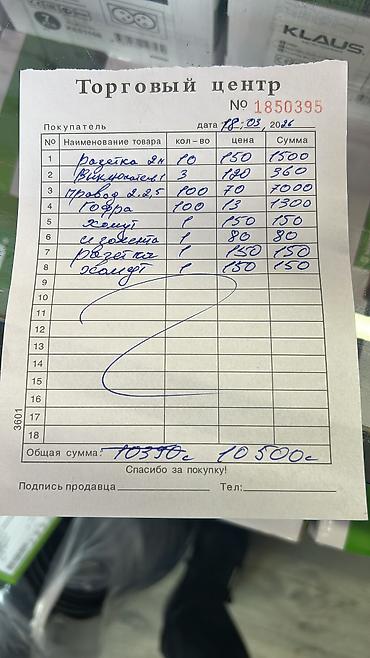 KLAUS
Торговый центр
№ 1850395
Покупатель дата 18.03, 2026
№ Наименование товара кол-во цена Сумма
1 розетка 2н 10 150 1500
2 Выключатель 1 3 120 360
3 Провод 2.2,5 100 70 7000
4 Гофра 100 13 1300
5 хомут 1 150 150
6 изолента 1 80 80
7 розетка 1 150 150
8 хомут 1 150 150
9
10
11
12
13
14
15
16
17
18
3601
Общая сумма: 10390с 10500с
Спасибо за покупку!
Подпись продавца Тел: